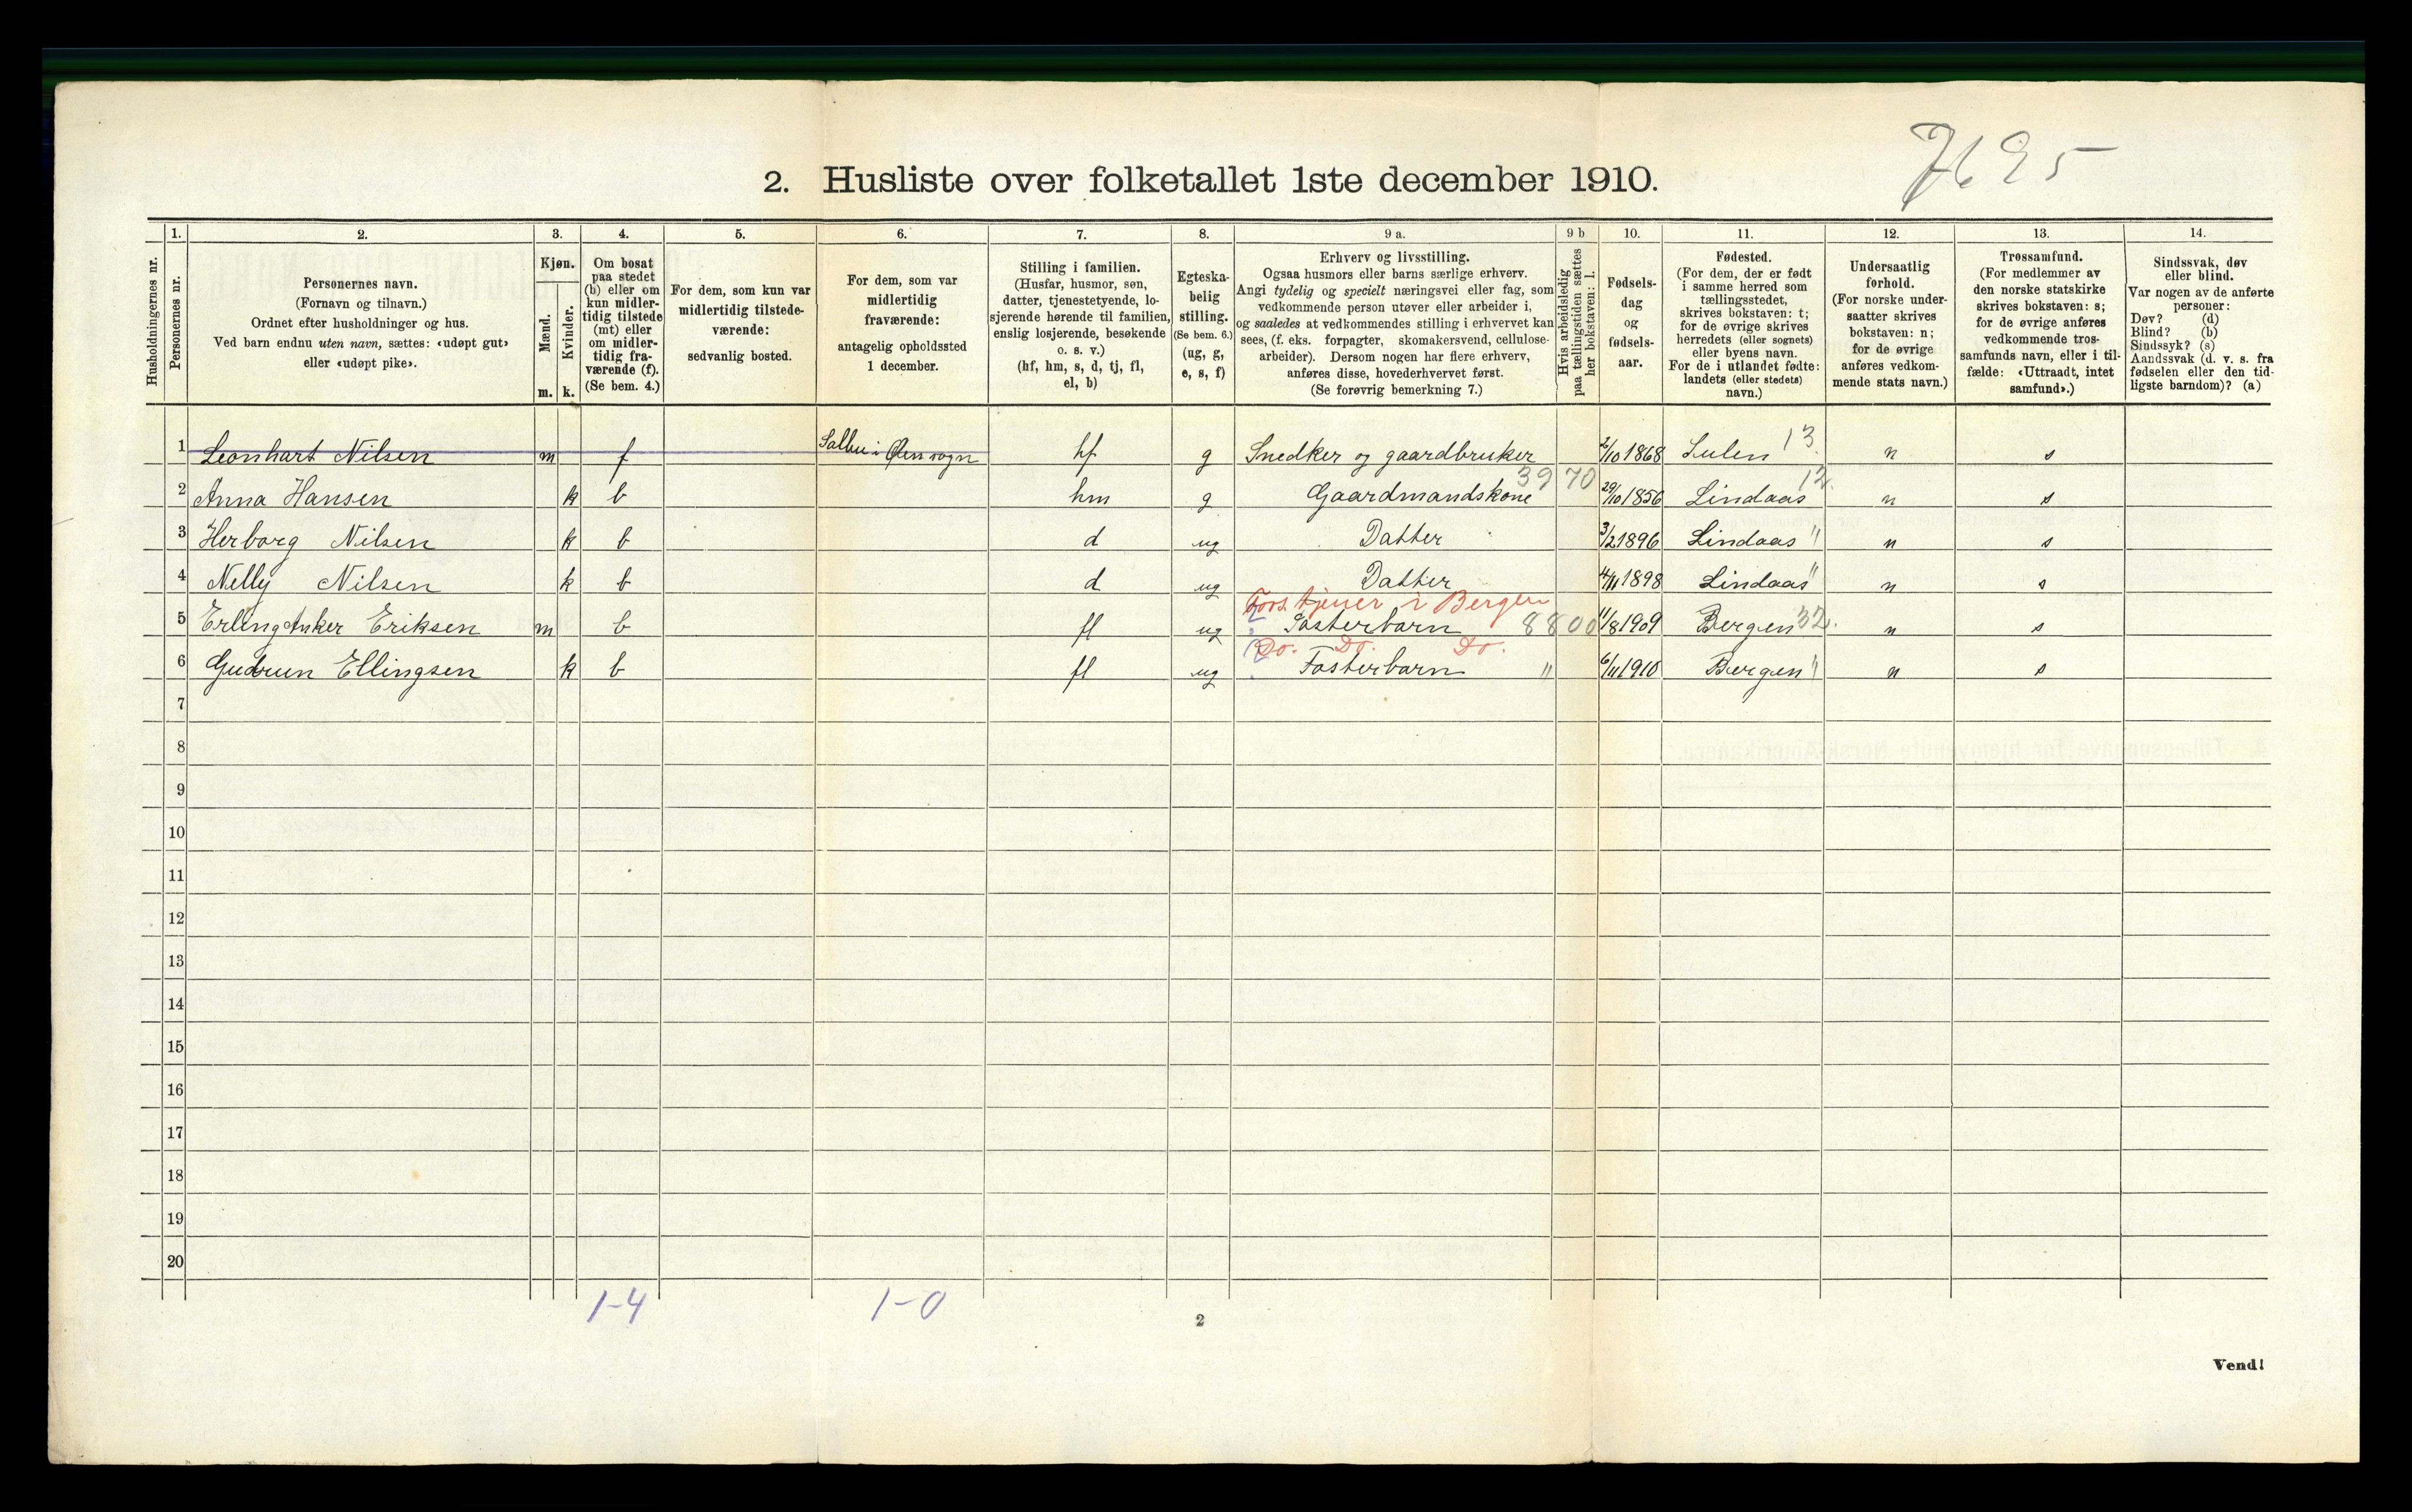 7695
2. Husliste over folketallet 1ste december 1910.
Husholdningernes nr.
1.
Personernes nr.
2.
Personernes navn.
(Fornavn og tilnavn.)
Ordnet efter husholdninger og hus.
Ved barn endnu uten navn, sættes: «udøpt gut»
eller «udøpt pike».
3.
Kjøn.
Mænd.
Kvinder.
m. k.
4.
Om bosat
paa stedet
(b) eller om
kun midler-
tidig tilstede
(mt) eller
om midler-
tidig fra-
værende (f).
(Se bem. 4.)
5.
For dem, som kun var
midlertidig tilstede-
værende:
sedvanlig bosted.
6.
For dem, som var
midlertidig
fraværende:
antagelig opholdssted
1 december.
7.
Stilling i familien.
(Husfar, husmor, søn,
datter, tjenestetyende, lo-
sjerende hørende til familien,
enslig losjerende, besøkende
o. s. v.)
(hf, hm, s, d, tj, fl,
el, b)
8.
Egteska-
belig
stilling.
(Se bem. 6.)
(ug, g,
e, s, f)
9 a.
Erhverv og livsstilling.
Ogsaa husmors eller barns særlige erhverv.
Angi tydelig og specielt næringsvei eller fag, som
vedkommende person utøver eller arbeider i,
og saaledes at vedkommendes stilling i erhvervet kan
sees, (f. eks. forpagter, skomakersvend, cellulose-
arbeider). Dersom nogen har flere erhverv,
anføres disse, hovederhvervet først.
(Se forøvrig bemerkning 7.)
9 b
Hvis arbeidsledig
paa tællingstiden sættes
her bokstaven: l.
10.
Fødsels-
dag
og
fødsels-
aar.
11.
Fødested.
(For dem, der er født
i samme herred som
tællingsstedet,
skrives bokstaven: t;
for de øvrige skrives
herredets (eller sognets)
eller byens navn.
For de i utlandet fødte:
landets (eller stedets)
navn.)
12.
Undersaatlig
forhold.
(For norske under-
saatter skrives
bokstaven: n;
for de øvrige
anføres vedkom-
mende stats navn.)
13.
Trossamfund.
(For medlemmer av
den norske statskirke
skrives bokstaven: s;
for de øvrige anføres
vedkommende tros-
samfunds navn, eller i til-
fælde: «Uttraadt, intet
samfund».)
14.
Sindssvak, døv
eller blind.
Var nogen av de anførte
personer:
Døv? (d)
Blind? (b)
Sindssyk? (s)
Aandssvak (d. v. s. fra
fødselen eller den tid-
ligste barndom)? (a)
1 Leonhart Nilsen m f i Ølen sogn hf g Snedker og gaardbruker 2/10 1868 Sulen 13 n s
2 Anna Hansen k b hm g Gaardmandskone 39 70 29/10 1856 Lindaas 12. n s
3 Herborg Nilsen k b d ug Datter 3/2 1896 Lindaas " n s
4 Nelly Nilsen k b d ug Datter 4/11 1898 Lindaas " n s
Fors. tjener i Bergen
5 Erling Anker Eriksen m b fl ug Fosterbarn 8800 11/8 1909 Bergen 32. n s
Do. Do. Do.
6 Gudrun Ellingsen k b fl ug Fosterbarn " 6/11 1910 Bergen " n s
7
8
9
10
11
12
13
14
15
16
17
18
19
20
1-4 1-0
2
Vend!